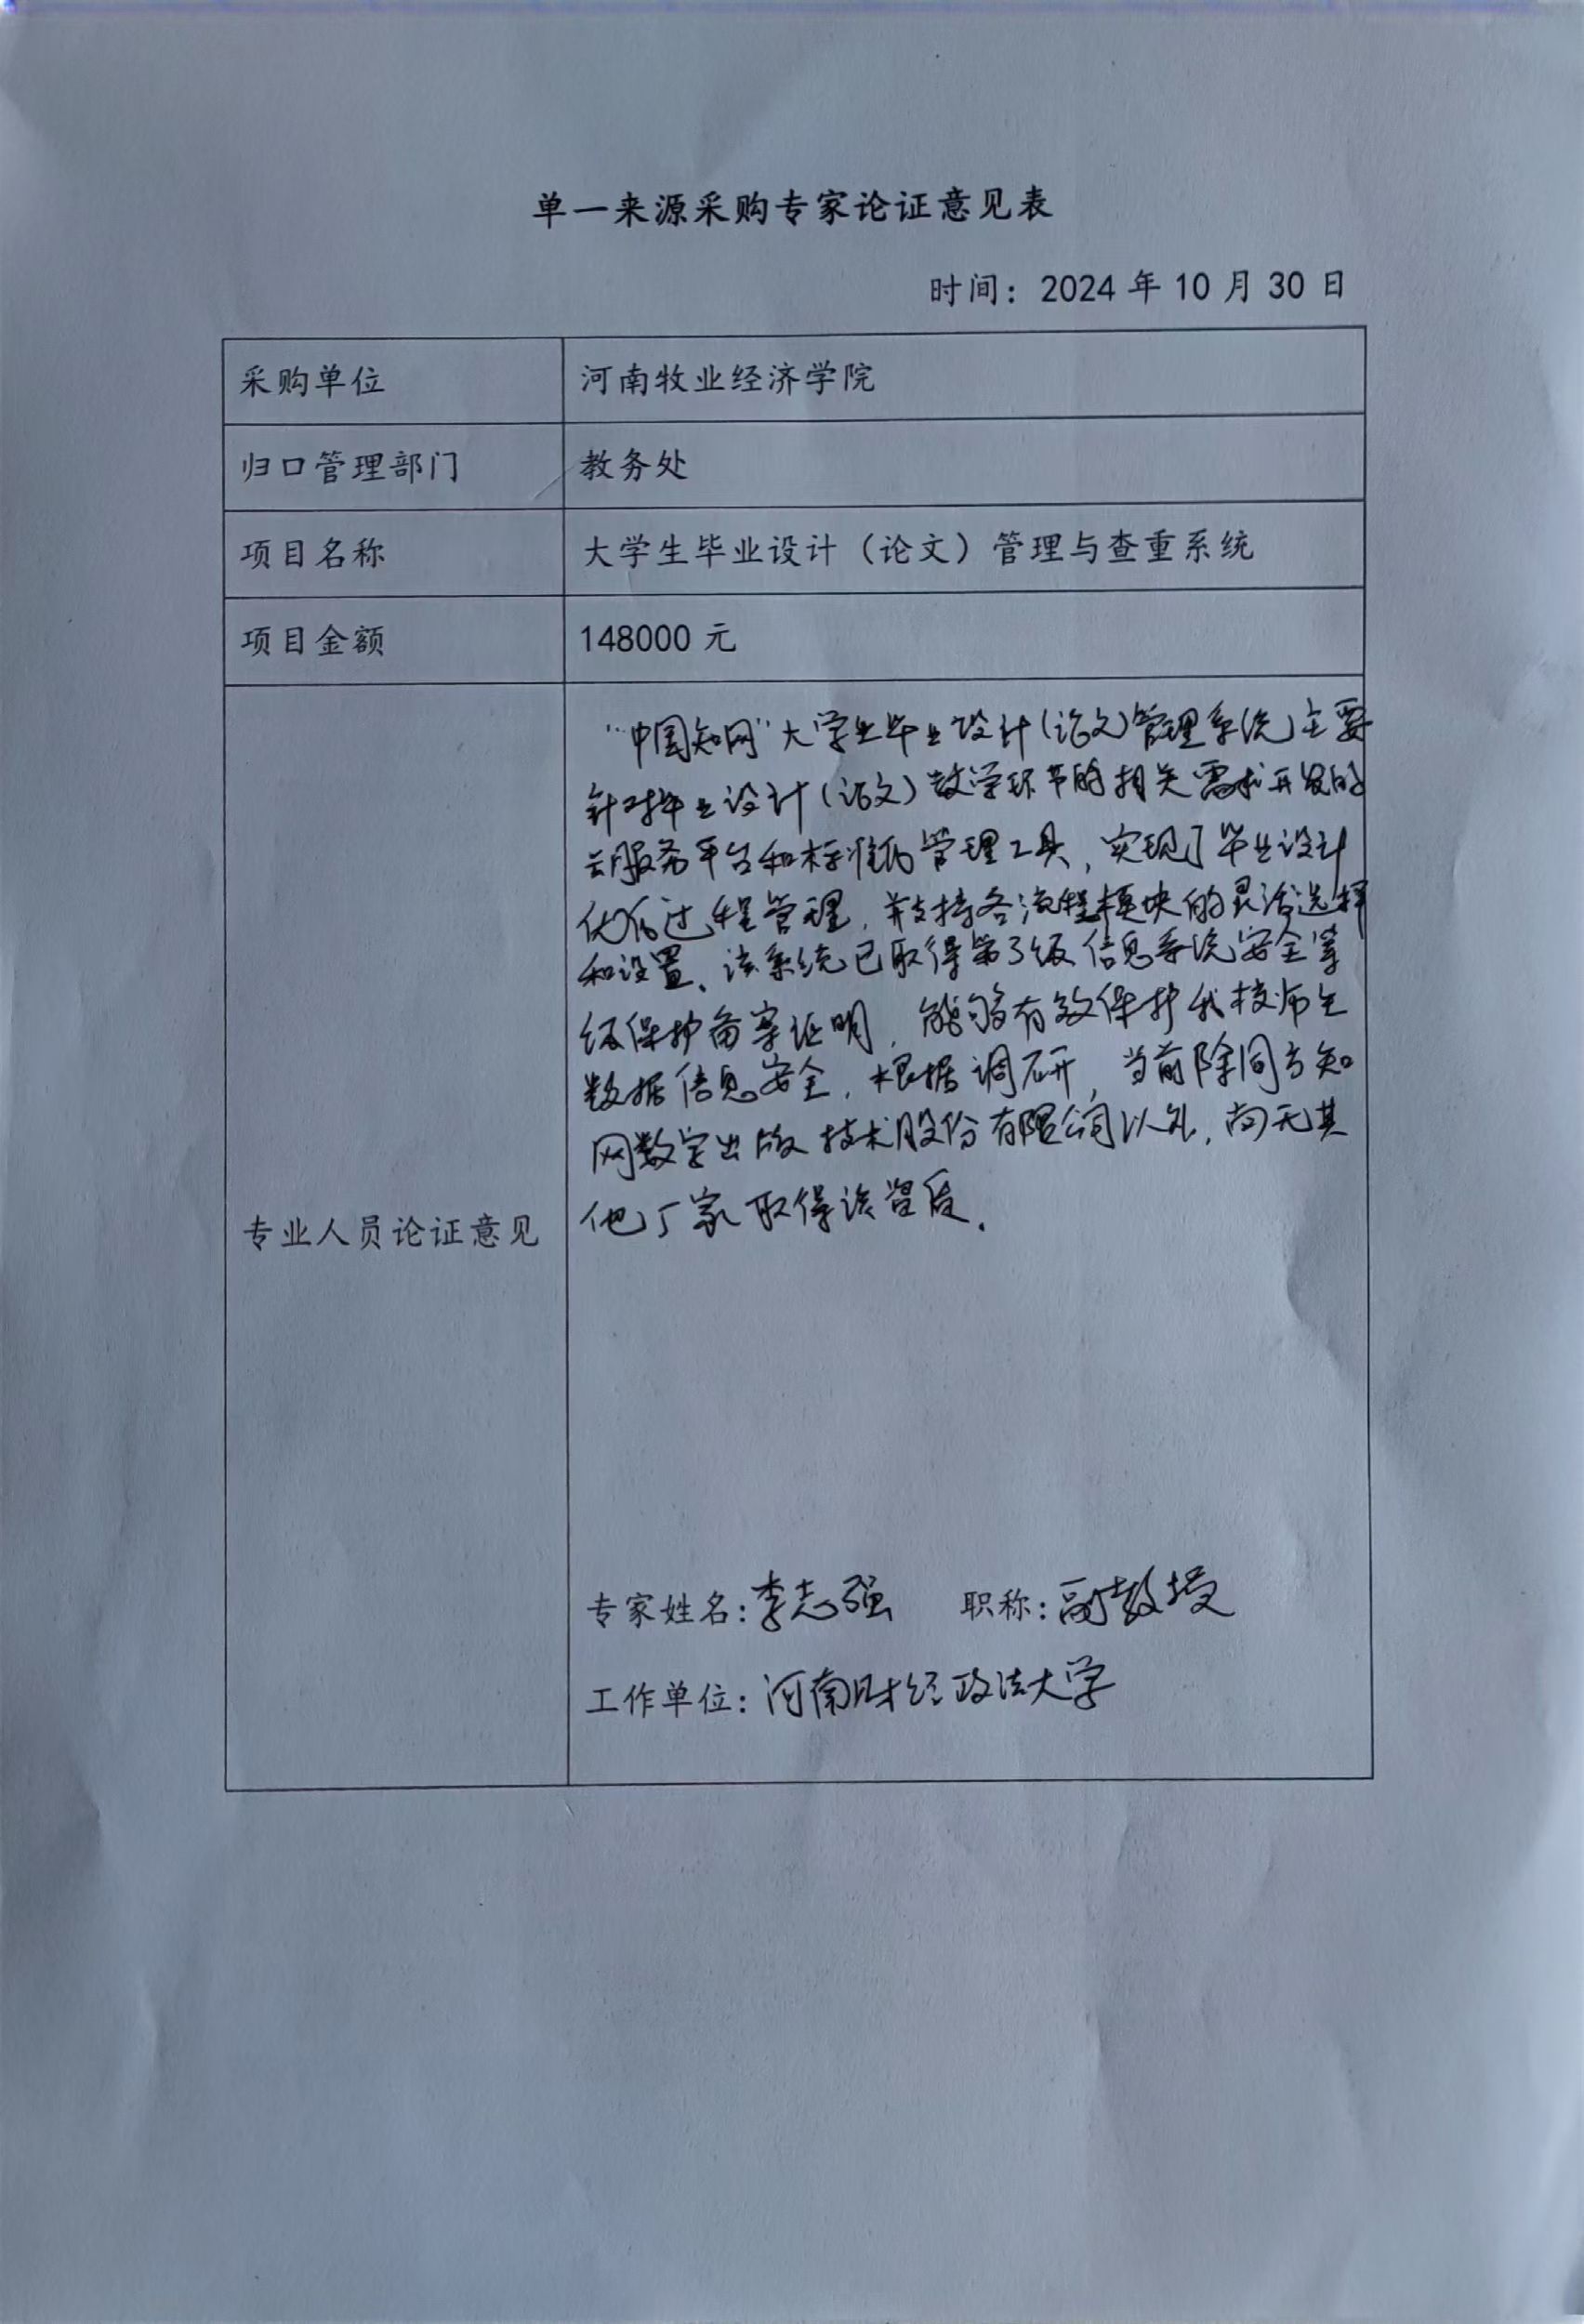 单一来源采购专家论证意见表
时间：2024 年 10 月 30 日
采购单位
河南牧业经济学院
归口管理部门
教务处
项目名称
大学生毕业设计（论文）管理与查重系统
项目金额
148000 元
专业人员论证意见
“中国知网”大学生毕业设计(论文)管理系统主要
针对毕业设计(论文)教学环节的相关需求开发的
云服务平台和标准的管理工具，实现了毕业设计
过程管理，并支持各流程模块的灵活选择
和设置、该系统已取得第3级信息系统安全等
级保护备案证明，能够有效保护我校师生
数据信息安全，根据调研，当前除同方知
网数字出版技术股份有限公司以外，尚无其
他厂家取得该资质。
专家姓名：李志强 职称：副教授
工作单位：河南财经政法大学